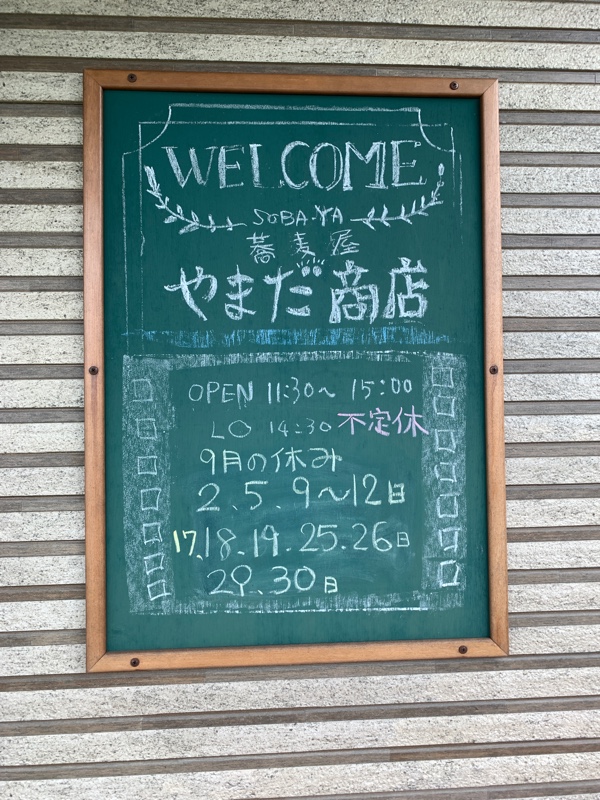 WELCOME
SOBA-YA
蕎麦屋
やまだ商店
OPEN 11:30〜 15:00
LO 14:30 不定休
9月の休み
2.5.9〜12日
17.18.19.25.26日
29.30日